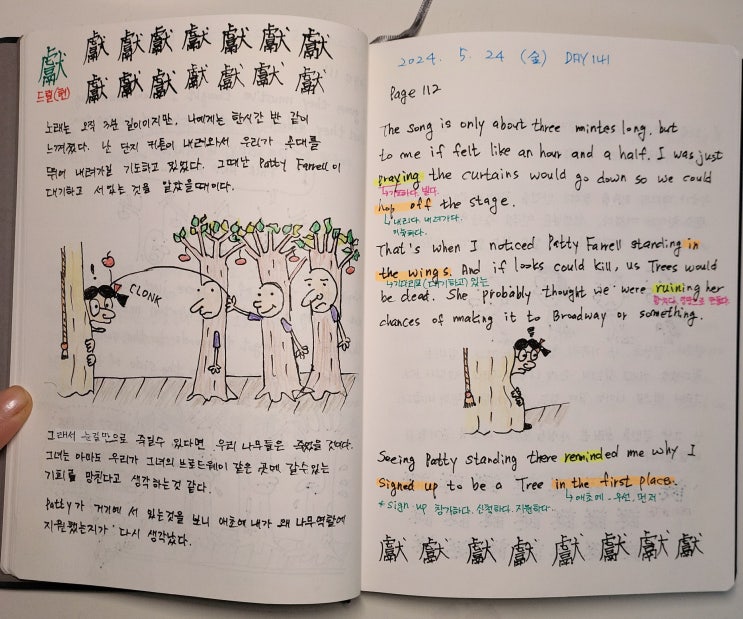 獻 獻 獻 獻 獻 獻 獻
獻 獻 獻 獻 獻 獻 獻 獻
드릴(헌)
노래는 오직 3분 길이이지만, 나에게는 한시간 반 같이
느껴졌다. 난 단지 커튼이 내려와서 우리가 무대를
뛰어 내려가길 기도하고 있었다. 그때난 Patty Farrell이
대기하고 서있는 것을 알았을때이다.
!
CLONK
그래서 눈길만으로 죽일수 있다면 우리 나무들은 죽었을 것이다.
그녀는 아마도 우리가 그녀의 브로드웨이 같은 곳에 갈수있는
기회를 망친다고 생각하는것 같다.
Patty가 거기에 서 있는것을 보니 애초에 내가 왜 나무역할에
지원했는지가 다시 생각났다.
2024. 5. 24 (金) DAY 141
Page 112
The song is only about three mintes long, but
to me if felt like an hour and a half. I was just
praying the curtains would go down so we could
↳기도하다. 빌다.
hop off the stage.
↳내리다. 내려가다.
That's when I noticed Patty Farrell standing in
the wings. And if looks could kill, us Trees would
↳기다리고(대기하고) 있는
be dead. She probably thought we were ruining her
chances of making it to Broadway or something.
Seeing Patty standing there reminded me why I
signed up to be a Tree in the first place.
↳ 애초에. 우선, 먼저
* sign up 참가하다. 신청하다. 지원하다
獻 獻 獻 獻 獻 獻 獻 獻